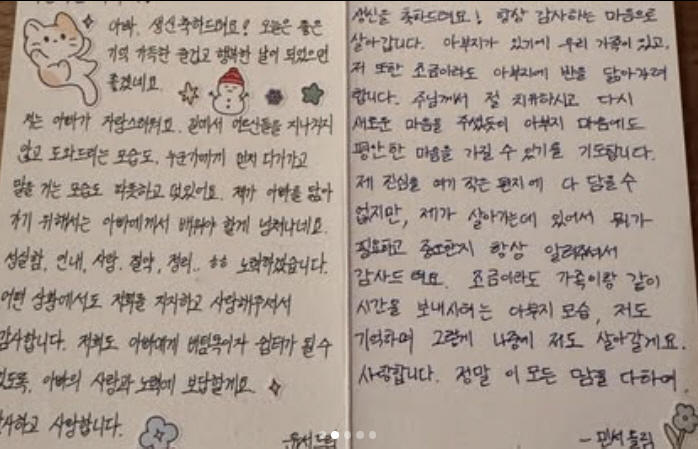 아빠, 생신축하드려요! 오늘은 좋은
기억 가득한 즐겁고 행복한 날이 되었으면
좋겠네요.
저는 아빠가 자랑스러워요. 길에서 어르신들을 지나치지
않고 도와드리는 모습도, 누군가에게 먼저 다가가고
말을 거는 모습도 따뜻하고 멋있어요. 제가 아빠를 닮아
가기 위해서는 아빠에게서 배워야 할게 넘쳐나네요.
성실함, 인내, 사랑, 절약, 정리.. ㅎㅎ 노력하겠습니다.
어떤 상황에서도 저희를 지지하고 사랑해주셔서
감사합니다. 저희도 아빠에게 버팀목이자 쉼터가 될 수
있도록, 아빠의 사랑과 노력에 보답할게요.
감사하고 사랑합니다.
생신을 축하드려요! 항상 감사하는 마음으로
살아갑니다. 아부지가 있기에 우리 가족이 있고,
저 또한 조금이라도 아부지에 반을 닮아가려
합니다. 주님께서 절 치유하시고 다시
새로운 마음을 주셨듯이 아부지 마음에도
평안한 마음을 가질 수 있기를 기도합니다.
제 진심을 여기 작은 편지에 다 담을 수
없지만, 제가 살아가는데 있어서 뭐가
필요하고 중요한지 항상 알려주셔서
감사드려요. 조금이라도 가족이랑 같이
시간을 보내시려는 아부지 모습, 저도
기억하며 그렇게 나중에 저도 살아갈게요.
사랑합니다. 정말 이 모든 맘을 다하여.
-민서 드림